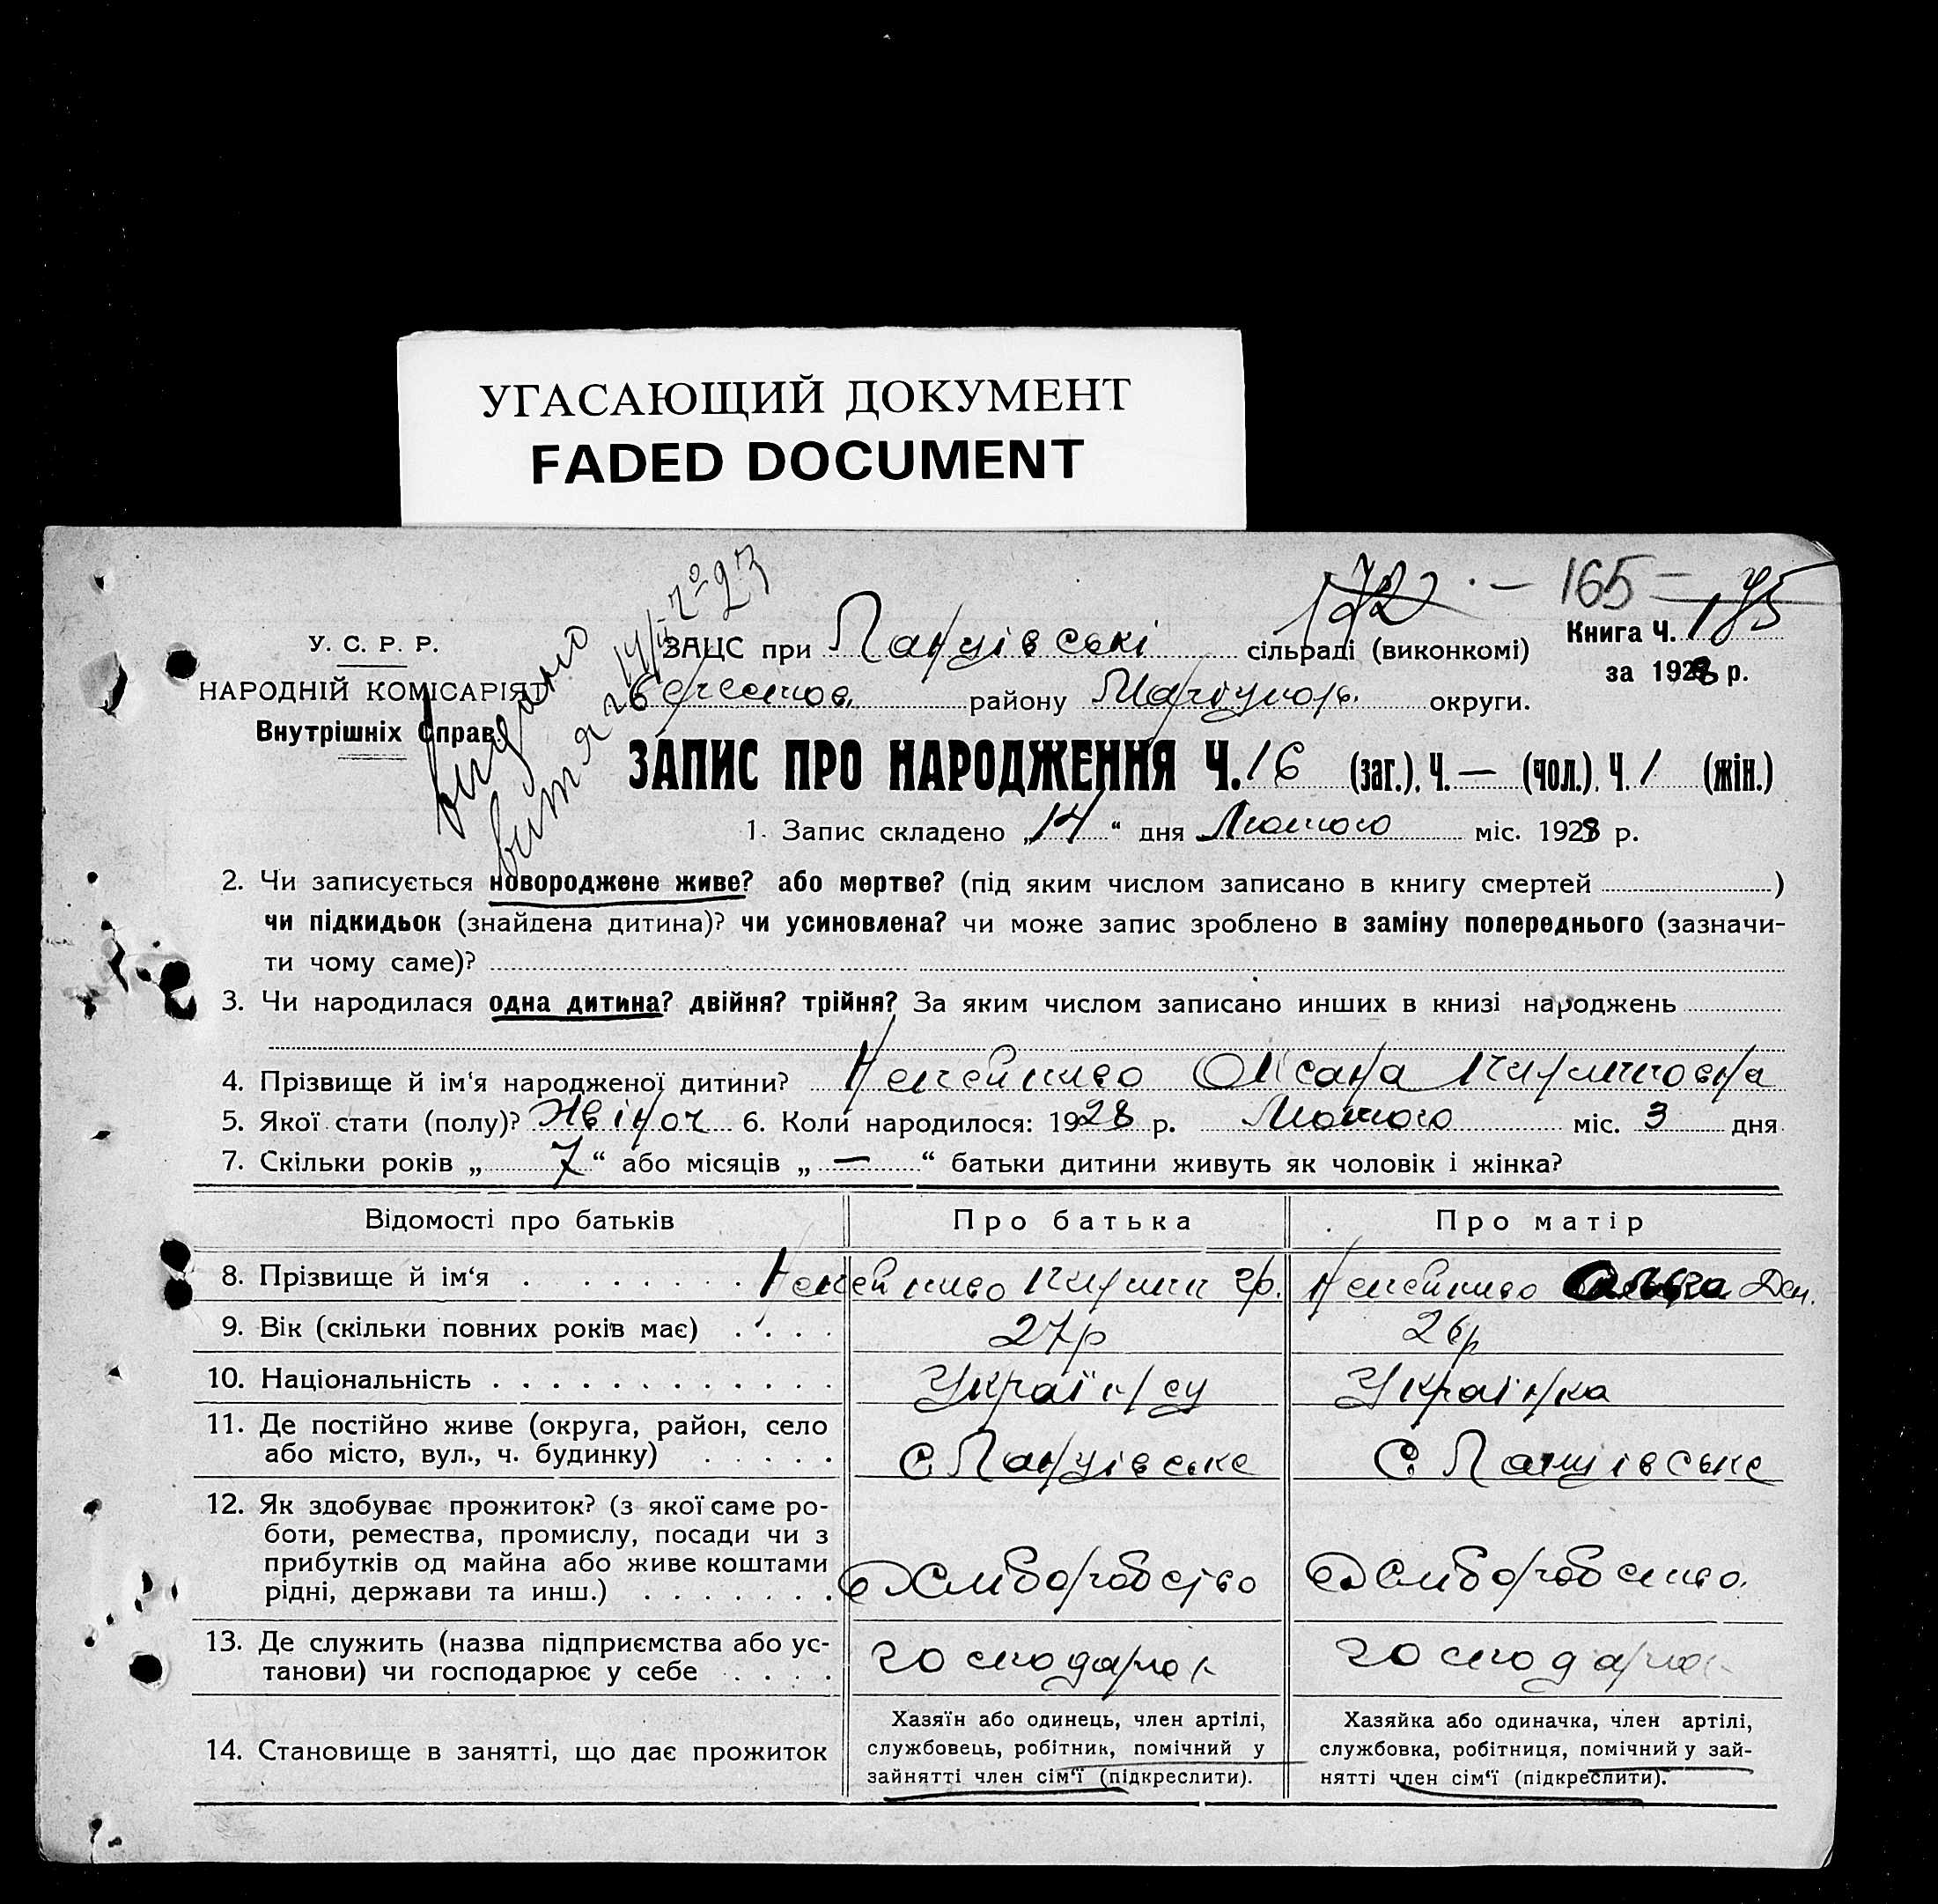 УГАСАЮЩИЙ ДОКУМЕНТ
FADED DOCUMENT
172 - 165 =
У. С. Р. Р.
НАРОДНІЙ КОМІСАРІЯТ
Внутрішніх Справ
видано
ЗАЦС при Ланцівські сільраді (виконкомі)
Книга Ч. 195
за 1928 р.
району Маріупольс. округи.
ЗАПИС ПРО НАРОДЖЕННЯ Ч. 16 (заг.). Ч. — (чол.). Ч. 1 (жін.)
1. Запис складено „14“ дня Лютого міс. 1928 р.
2. Чи записується новороджене живе? або мертве? (під яким числом записано в книгу смертей )
чи підкидьок (знайдена дитина)? чи усиновлена? чи може запис зроблено в заміну попереднього (зазначи-
ти чому саме)?
3. Чи народилася одна дитина? двійня? трійня? За яким числом записано инших в книзі народжень
4. Прізвище й ім'я народженої дитини? Непейпиво Оксана Кирилповна
5. Якої стати (полу)? Жвіноч 6. Коли народилося: 1928 р. Лютого міс. 3 дня
7. Скільки років „ 7 “ або місяців „ — “ батьки дитини живуть як чоловік і жінка?
Відомості про батьків Про батька Про матір
8. Прізвище й ім'я . . . . . . . Непейпиво Кирил Гр. Непейпиво Ольга Ден.
9. Вік (скільки повних років має) . . . . 27р 26р
10. Національність . . . . . . . . . . . . . Українец Українка
11. Де постійно живе (округа, район, село
або місто, вул., ч. будинку) . . . . . С. Ланцівське С. Ланцівське
12. Як здобуває прожиток? (з якої саме ро-
боти, ремества, промислу, посади чи з
прибутків од майна або живе коштами
рідні, держави та инш.) . . . . . . . Хліборобство Хліборобство.
13. Де служить (назва підприємства або ус-
танови) чи господарює у себе . . . . господарює господарює
14. Становище в занятті, що дає прожиток
Хазяїн або одинець, член артілі,
службовець, робітник, помічний у
зайнятті член сім'ї (підкреслити).
Хазяйка або одиначка, член артілі,
службовка, робітниця, помічний у зай-
нятті член сім'ї (підкреслити).